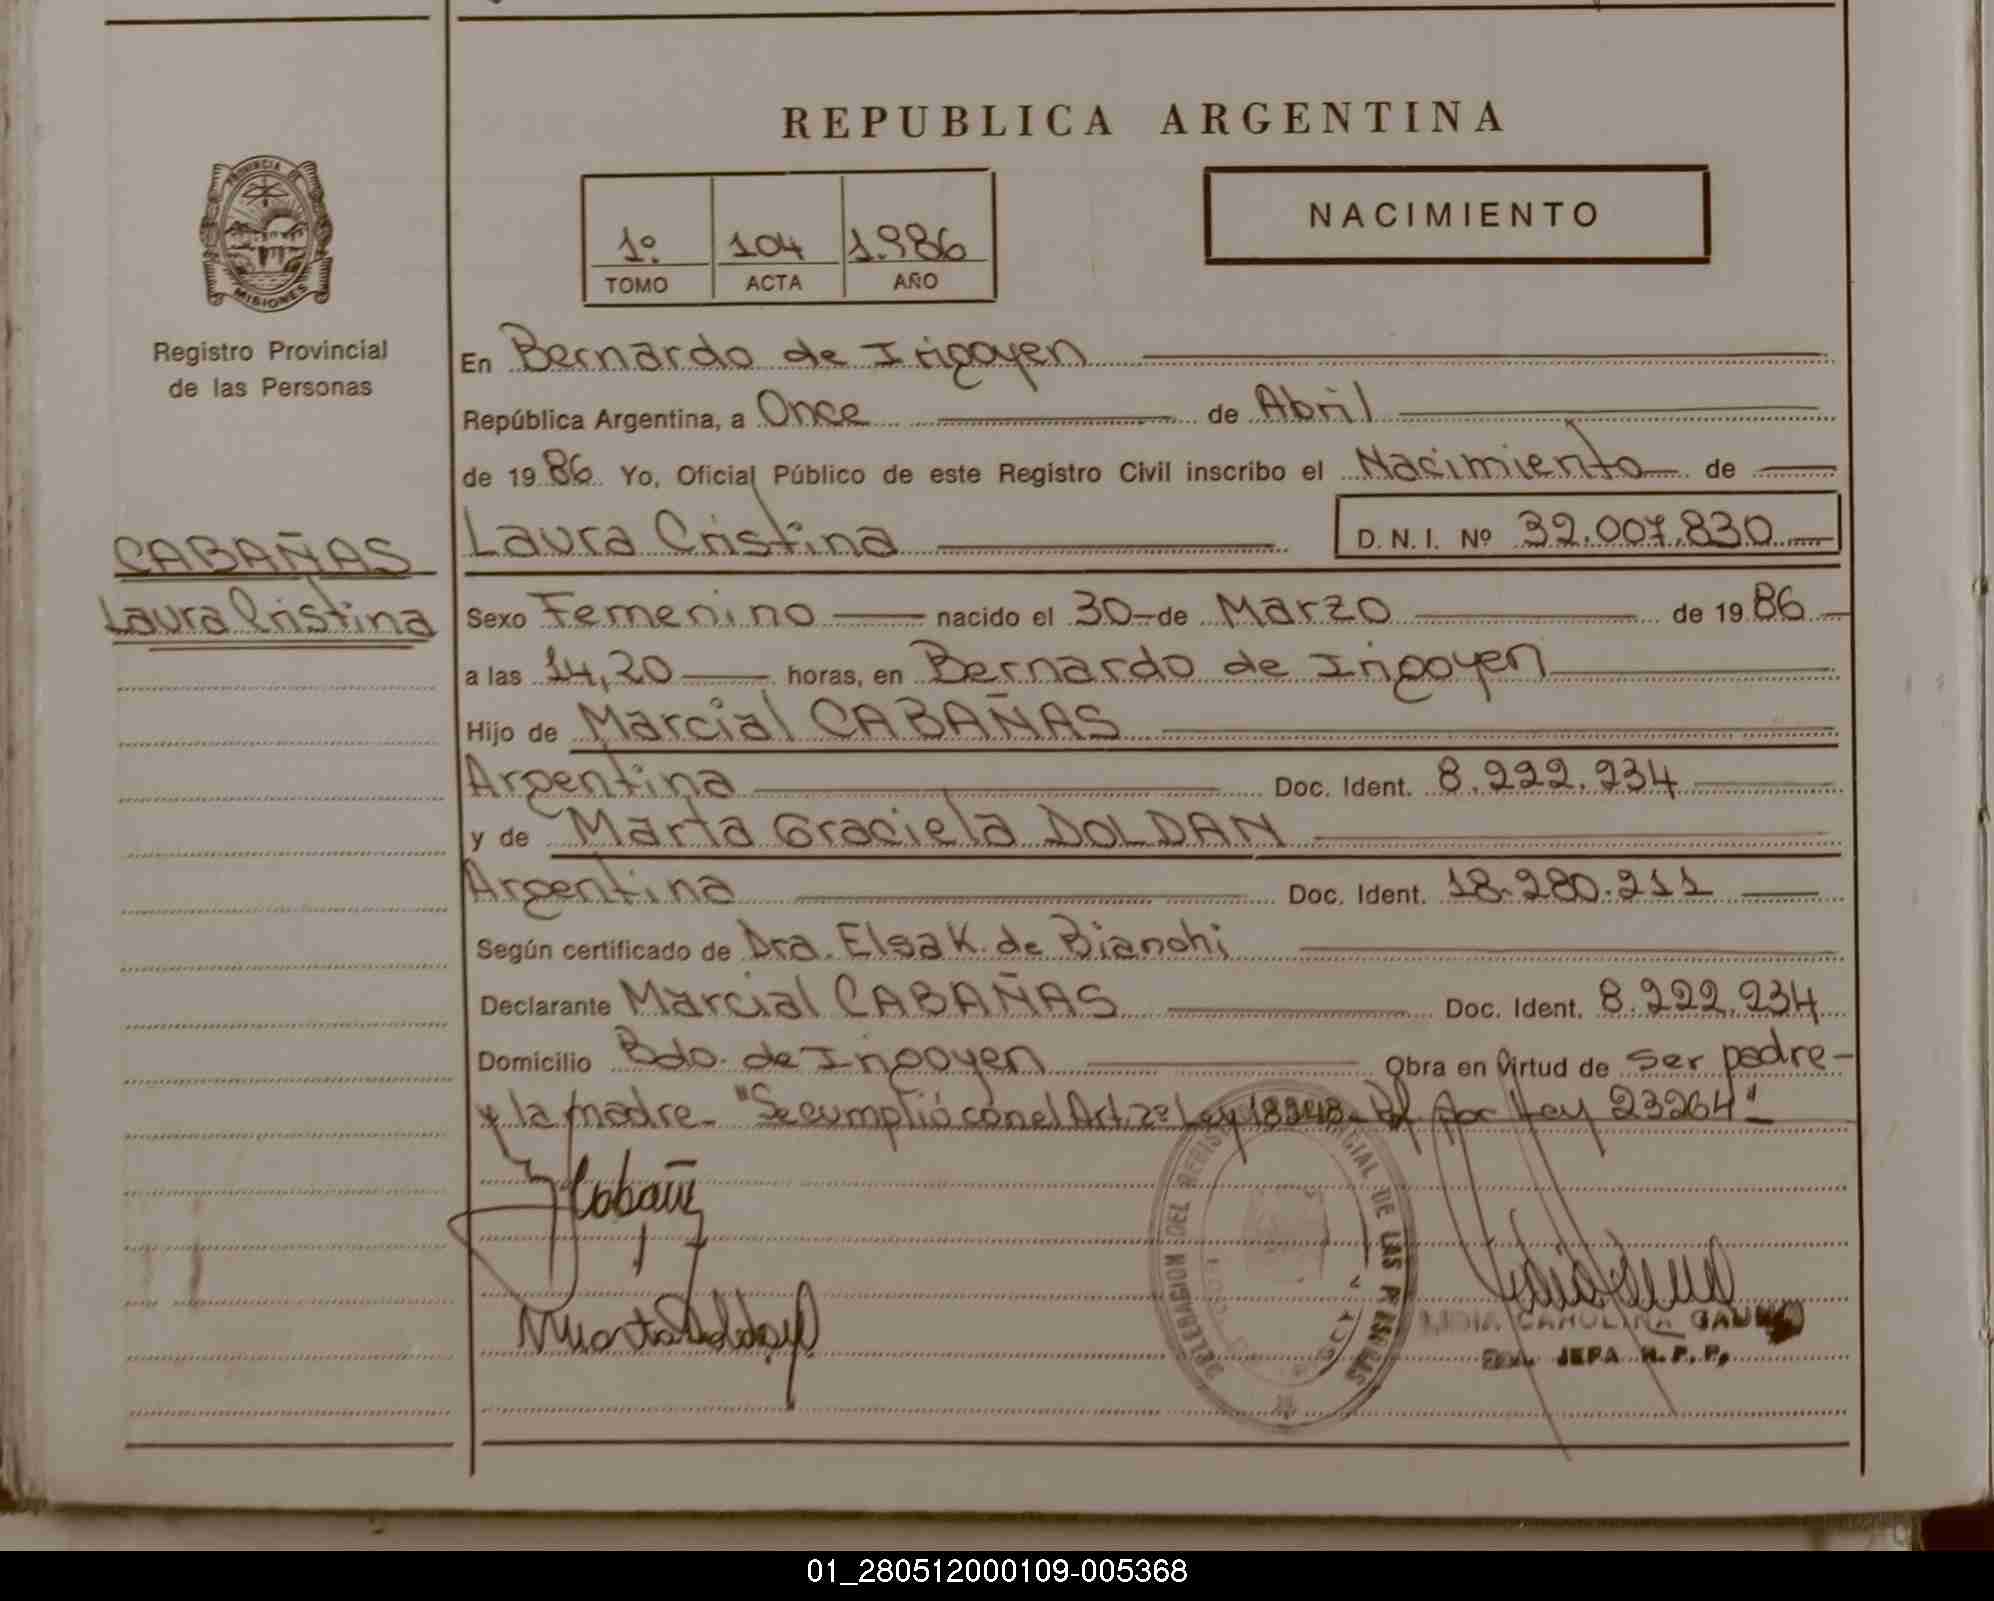 REPUBLICA ARGENTINA
PROVINCIA DE
MISIONES
Registro Provincial
de las Personas
1º 104 1.986
TOMO ACTA AÑO
NACIMIENTO
En Bernardo de Irigoyen
República Argentina, a Once de Abril
de 1986 Yo, Oficial Público de este Registro Civil inscribo el Nacimiento de
CABAÑAS
Laura Cristina
Laura Cristina D. N. I. Nº 32.007.830
Sexo Femenino nacido el 30 de Marzo de 1986
a las 14,20 horas, en Bernardo de Irigoyen
Hijo de Marcial CABAÑAS
Argentina Doc. Ident. 8.222.234
y de Marta Graciela DOLDAN
Argentina Doc. Ident. 18.280.211
Según certificado de Dra. Elsa K. de Bianchi
Declarante Marcial CABAÑAS Doc. Ident. 8.222.234
Domicilio Bdo. de Irigoyen Obra en Virtud de ser padre
y la madre "Se cumplió con el Art. 2º Ley 18248 por Ley 23264"
Cabañ
Marta Doldan
DELEGACION DEL REGISTRO PROVINCIAL DE LAS PERSONAS
LIDIA CAROLINA
JEFA R. P. P.
01_280512000109-005368